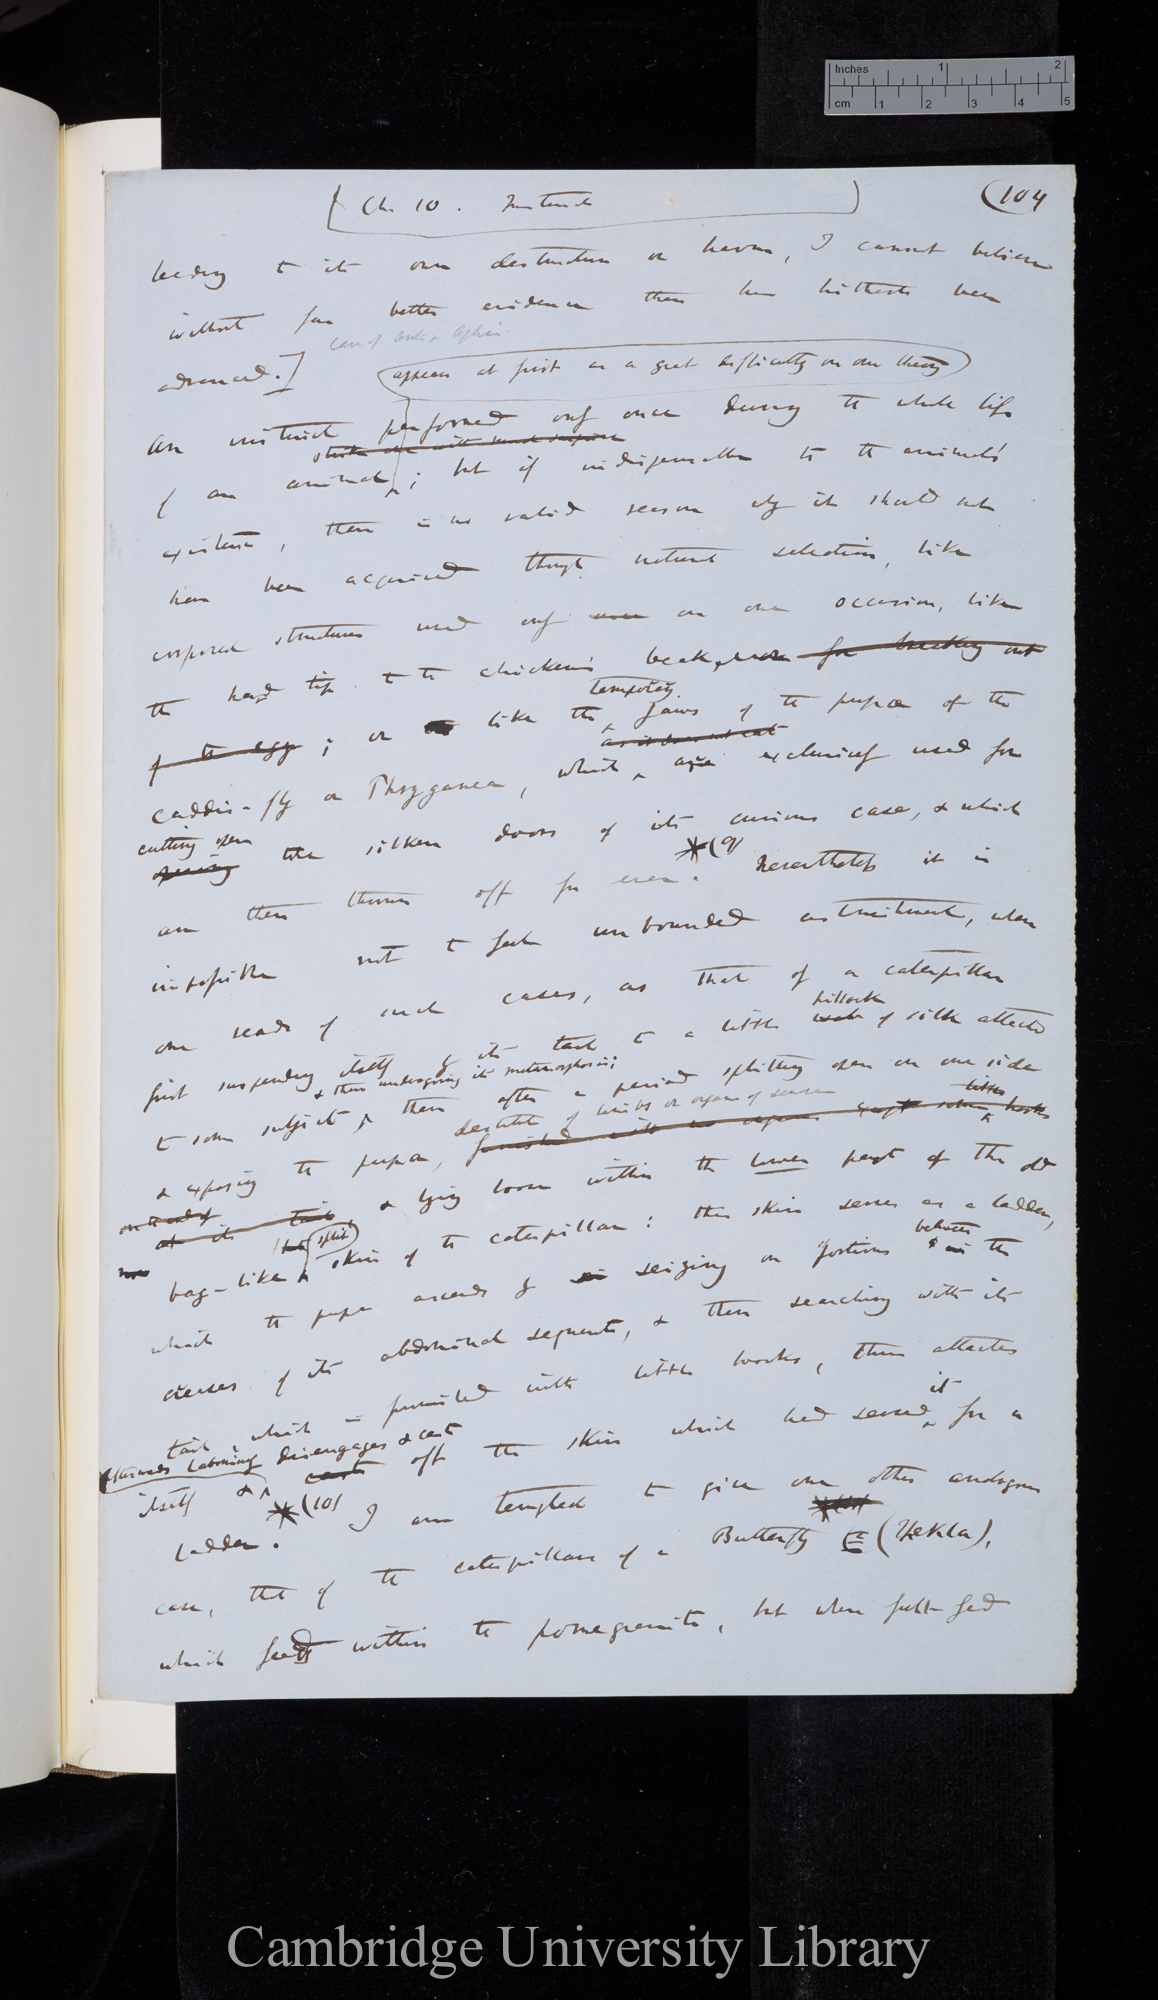 Inches 1 2
cm 1 2 3 4 5
Ch. 10. Instinct (104
leading to its own destruction or harm, I cannot believe
without far better evidence than has hitherto been
case of ants & Aphis.
advanced.]
appears at first as a great difficulty on our theory
An instinct performed only once during the whole life
of an animal; but if indispensable to the animal's
existence, there is no valid reason why it should not
have been acquired through natural selection, like
corporeal structures used only on one occasion, like
the hard tip to the chicken's beak, for breaking out
of the egg; or like the temporary jaws of the pupa of the
as it does not eat
caddis-fly or Phryganea, which are exclusively used for
cutting open
opening the silken doors of its curious case, & which
are then thrown off for ever. *(9) Nevertheless it is
impossible not to feel unbounded astonishment, when
one reads of such cases, as that of a caterpillar
hillock
first suspending itself by its tail to a little web of silk attached
& then undergoing its metamorphosis;
to some object, then after a period splitting open on one side
destitute of limbs or organs of sense little
& exposing the pupa, furnished with no organs except some hooks
on the end of
at its tail, & lying loose within the lower part of the old
split
bag-like skin of the caterpillar: this skin serves as a ladder,
between
which the pupa ascends by seizing on portions in the
creases of its abdominal segments, & then searching with its
tail, which is provided with little hooks, thus attaches
it
afterwards labouring disengages & cast
itself & casts off the skin which had served for a
ladder. *(10) I am tempted to give one other analogous
case, that of the caterpillar of a Butterfly (Thekla),
which feeds within the pomegranite, but when full-fed
Cambridge University Library